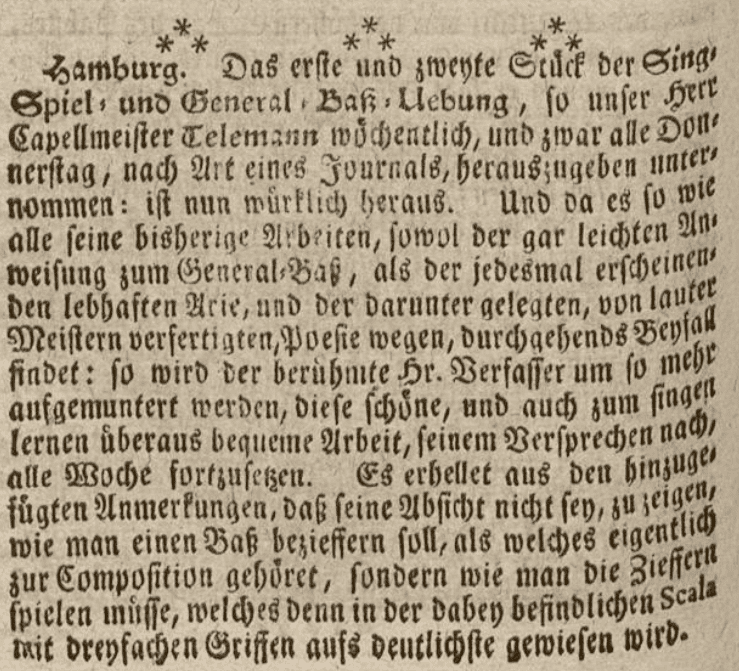 * * * * * * * * *
Hamburg. Das erste und zweyte Stück der Sing-
Spiel- und General-Baß-Uebung, so unser Herr
Capellmeister Telemann wöchentlich, und zwar alle Don-
nerstag, nach Art eines Journals, herauszugeben unter-
nommen: ist nun würklich heraus. Und da es so wie
alle seine bisherige Arbeiten, sowol der gar leichten An-
weisung zum General-Baß, als der jedesmal erscheinen-
den lebhaften Arie, und der darunter gelegten, von lauter
Meistern verfertigten, Poesie wegen, durchgehends Beyfall
findet: so wird der berühmte Hr. Verfasser um so mehr
aufgemuntert werden, diese schöne, und auch zum singen
lernen überaus bequeme Arbeit, seinem Versprechen nach,
alle Woche fortzusetzen. Es erhellet aus den hinzuge-
fügten Anmerkungen, daß seine Absicht nicht sey, zu zeigen,
wie man einen Baß bezieffern soll, als welches eigentlich
zur Composition gehöret, sondern wie man die Zieffern
spielen müsse, welches denn in der dabey befindlichen Scala
mit dreyfachen Griffen aufs deutlichste gewiesen wird.